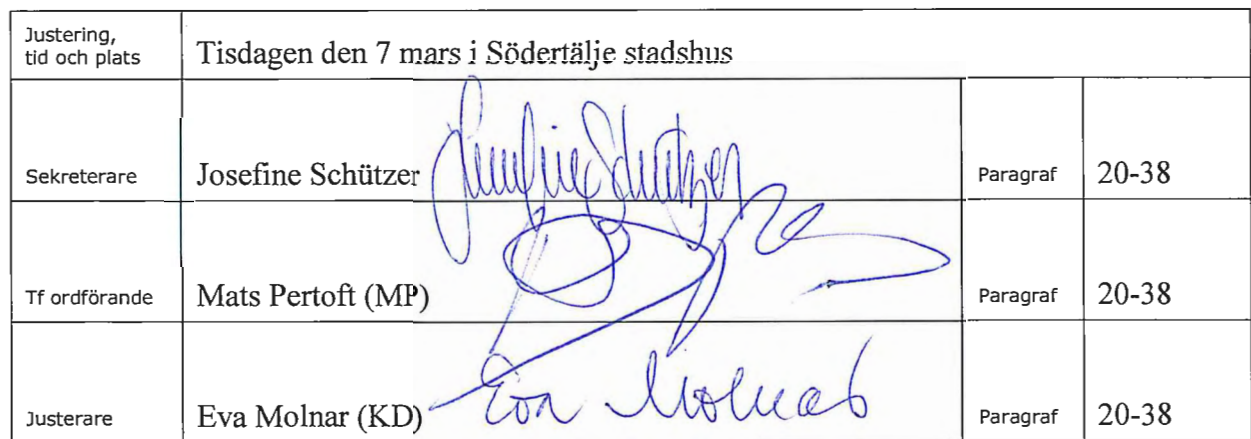 Justering,
tid och plats Tisdagen den 7 mars i Södertälje stadshus
Sekreterare Josefine Schützer Josefine Schützer Paragraf 20-38
Tf ordförande Mats Pertoft (MP) Paragraf 20-38
Justerare Eva Molnar (KD) Eva Molnar Paragraf 20-38